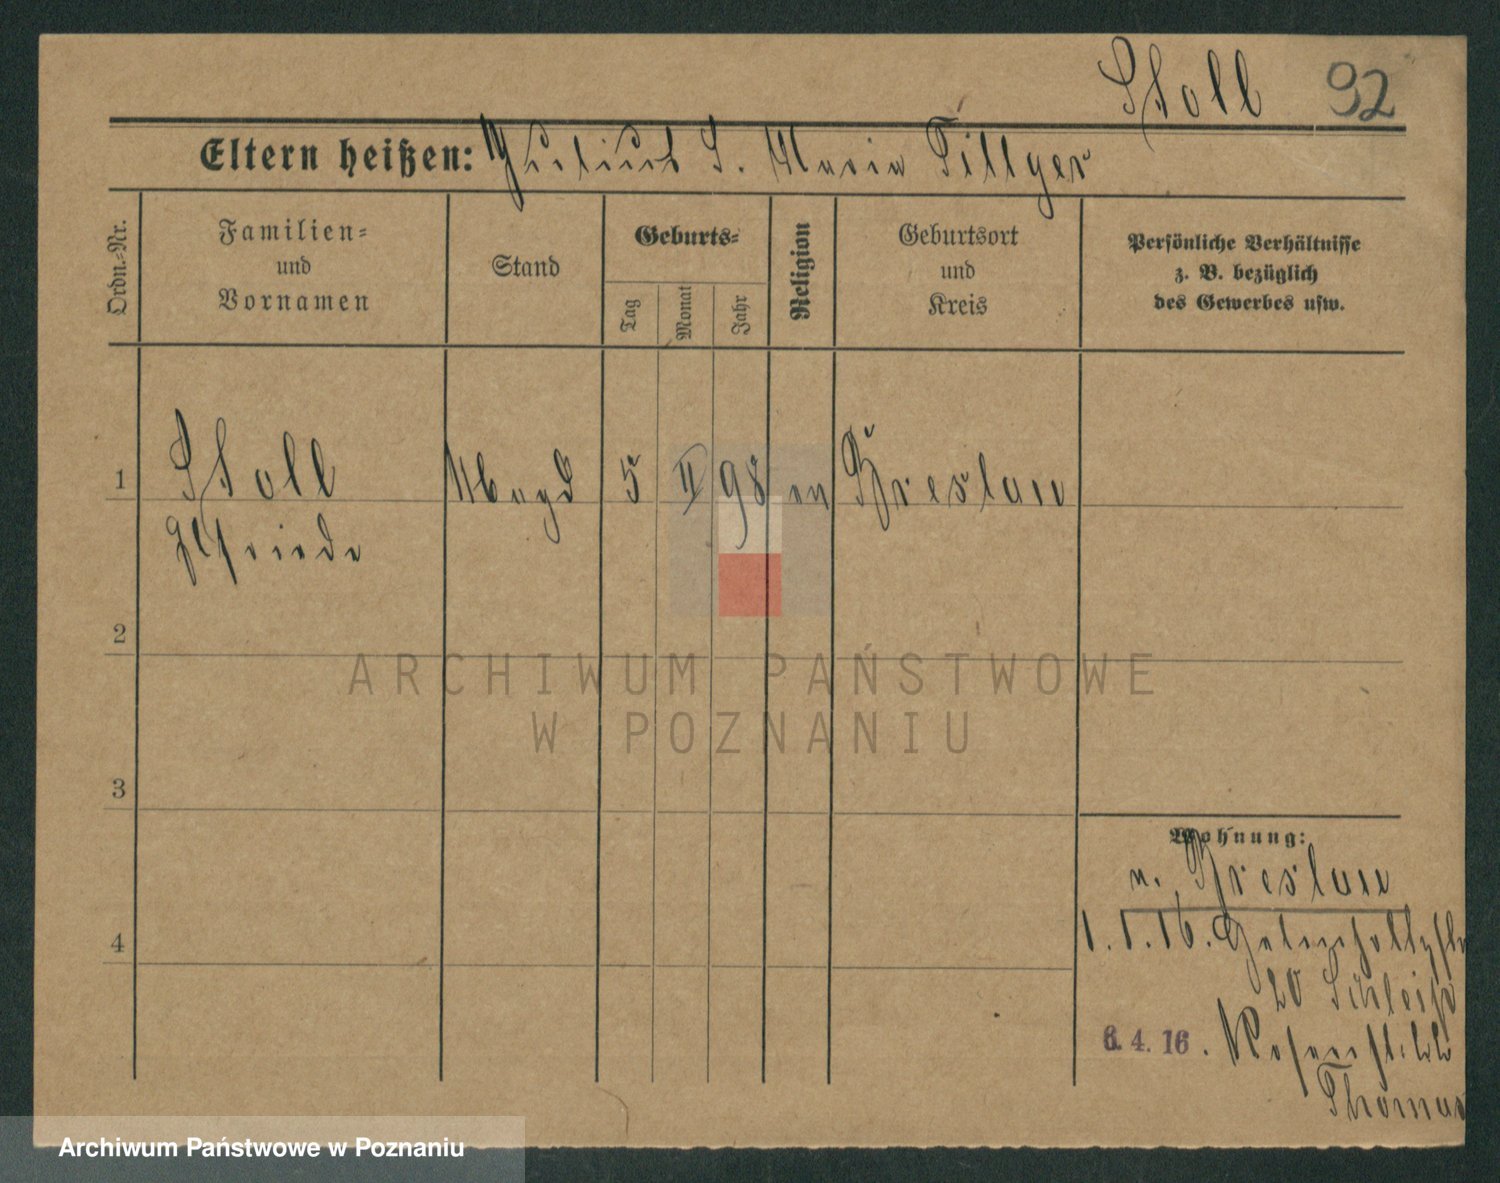 Stoll 92
Eltern heißen: S. Maria
Ordn.-Nr.
Familien-
und
Vornamen
Stand
Geburts-
Tag
Monat
Jahr
Religion
Geburtsort
und
Kreis
Persönliche Verhältnisse
z. B. bezüglich
des Gewerbes usw.
1 Stoll Magd 5 II 98 ev Breslau
Elfriede
2
3
4
Wohnung:
n. Breslau
1. 1. 16.
20
6. 4. 16.
Thomas
ARCHIWUM PAŃSTWOWE
W POZNANIU
Archiwum Państwowe w Poznaniu